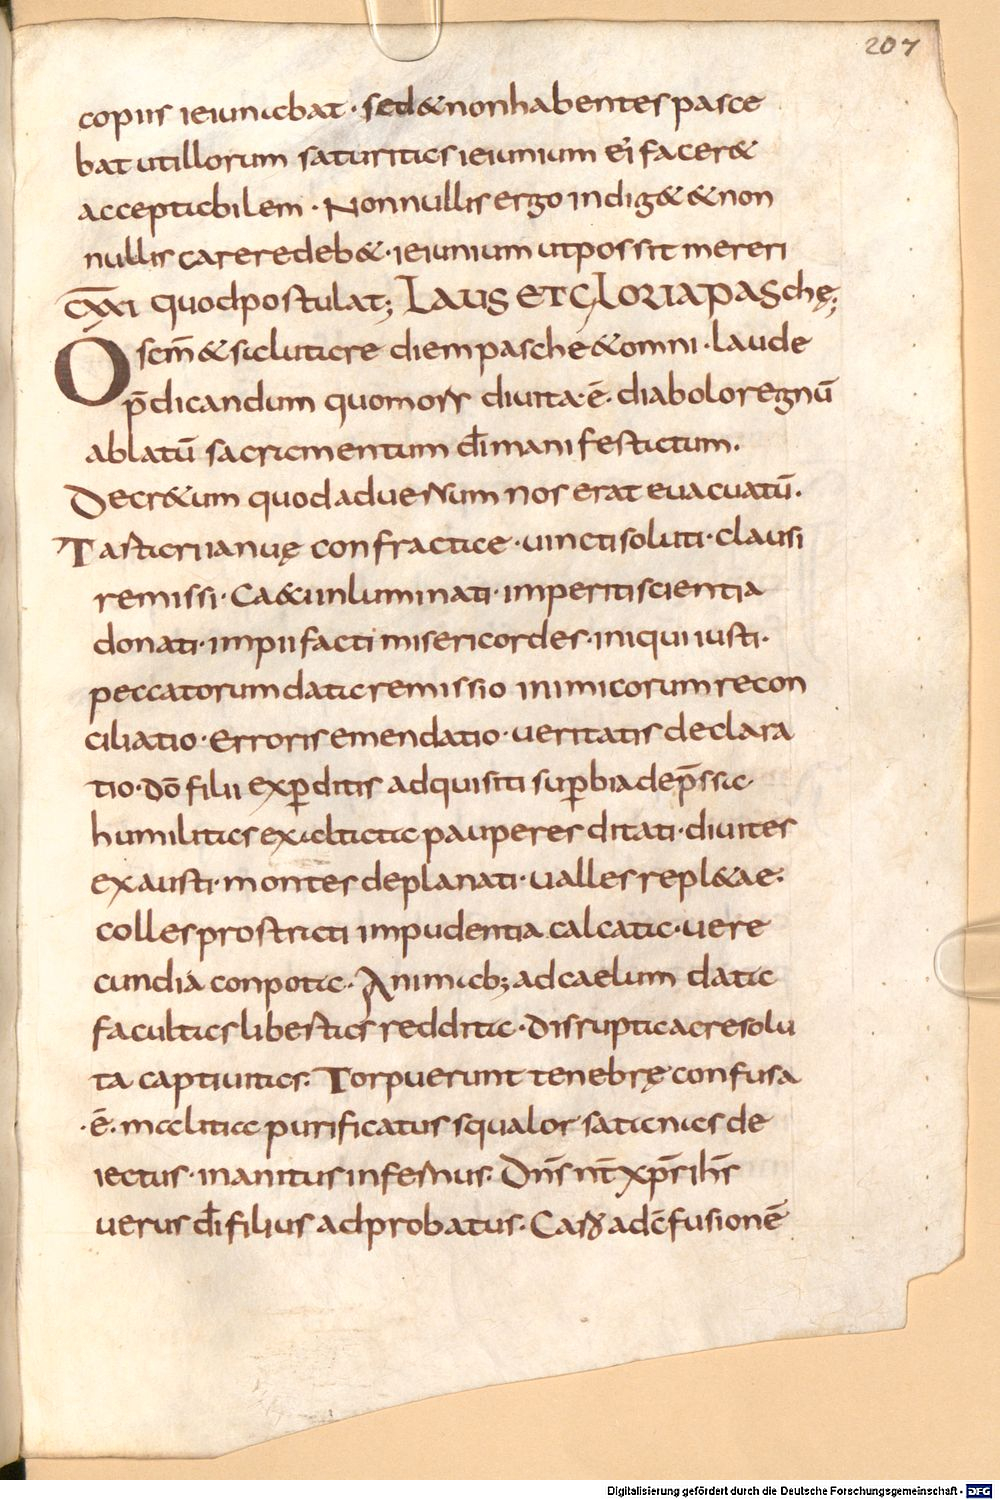 207
copiis ieiunabat · sed & non habentes pasce
bat ut illorum saturitas ieiunium ei facer&
acceptabilem · Non nullis ergo indig& & non
nullis carere deb& · ieiunium ut possit mereri
CXXI quod postulat; LAUS ET GLORIA PASchę;
O scm̄ & salutare diem pasche & omni · laude
p̄dicandum quo mors diuita · ē · diabolo regnū
ablatū sacramentum dī manifestatum.
Decr&um quod aduersum nos erat euacuatū.
Tartari ianuę confractae · uincti soluti · clausi
remissi · Ca&i inluminati · imperiti scientia
donati · impii facti misericordes · iniqui iusti ·
peccatorum data remissio inimicorum recon
ciliatio · erroris emendatio · ueritatis declara
tio · dō filii exp̄ditis adquisiti sup̄bia dep̄ssa
humilitas exaltata pauperes ditati · diuites
exausti · montes deplanati · ualles repl&ae ·
colles prostrati impudentia calcata · uere
cundia conpota · Animab; ad caelum data
facultas libertas reddita · disrupta ac resolu
ta captiuitas. Torpuerunt tenebrę confusa
· ē · malitia purificatus squalor satanas de
iectus · inanitus infernus. Dn̄s nr̄ xp̄s ih̄s
uerus dī filius adprobatus. adc̄fusionē
Digitalisierung gefördert durch die Deutsche Forschungsgemeinschaft - DFG